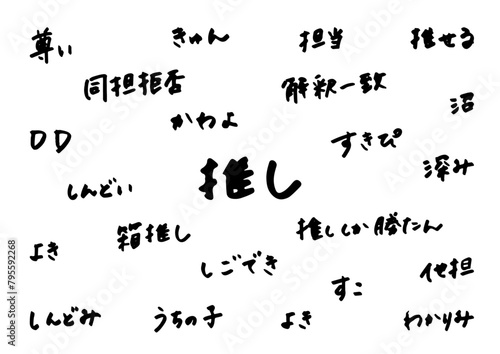 尊い きゅん 担当 推せる
同担拒否 解釈一致 沼
DD かわよ すきぴ
しんどい 推し 深み
よき 箱推し 推ししか勝たん
しごでき すこ 他担
しんどみ うちの子 よき わかりみ
Adobe Stock | #795592268
Adobe Stock